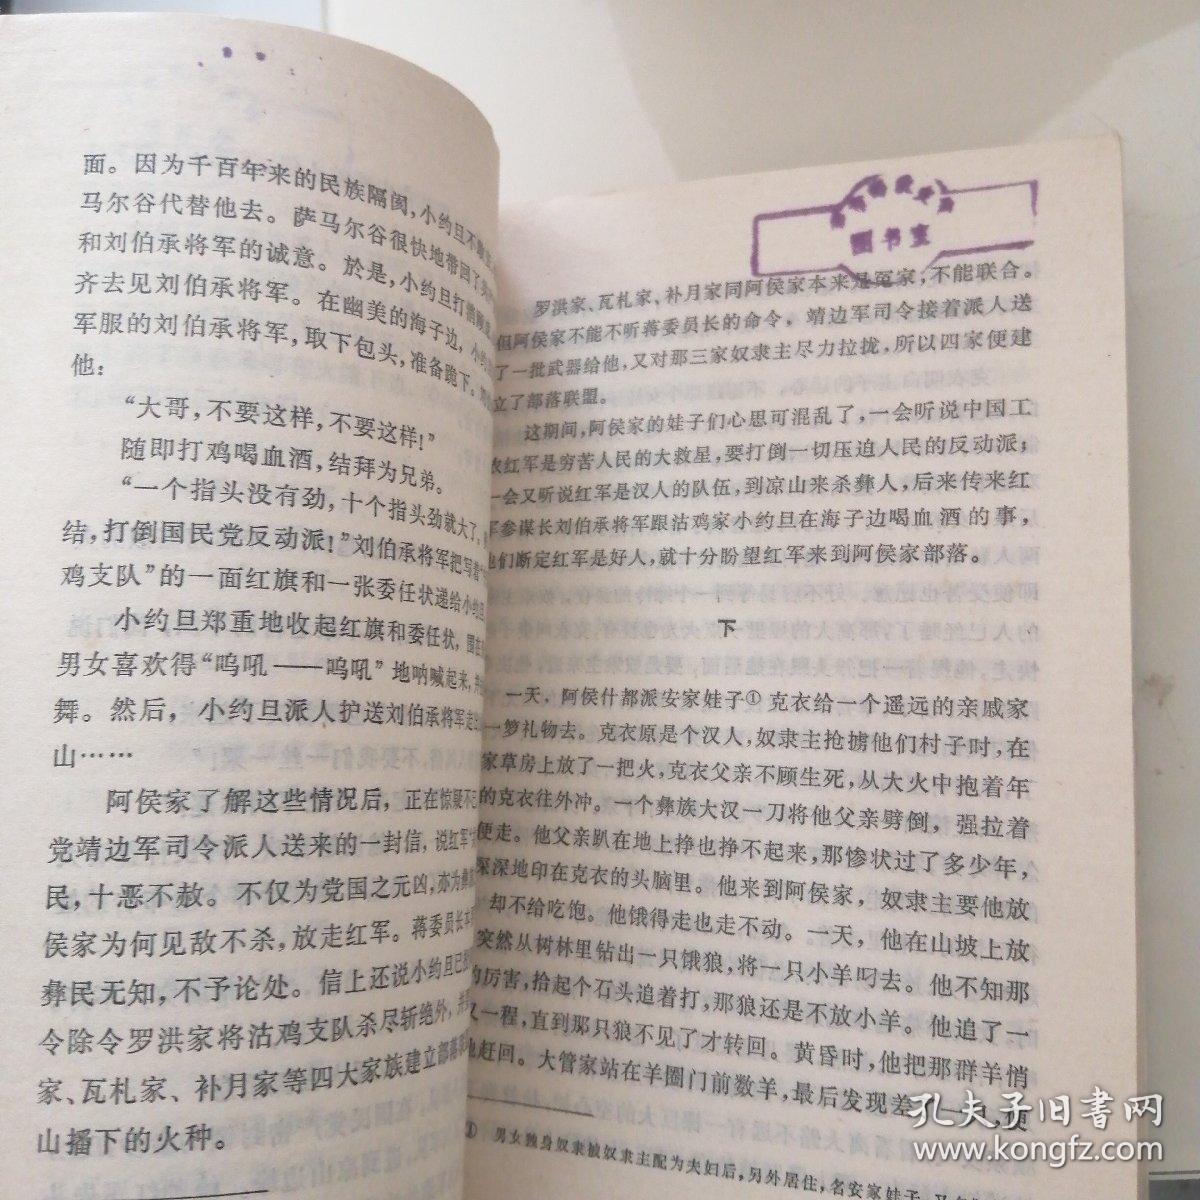 面。因为千百年来的民族隔阂，小约旦不
马尔谷代替他去。萨马尔谷很快地带回了
和刘伯承将军的诚意。於是，小约旦打消顾
齐去见刘伯承将军。在幽美的海子边，小约
军服的刘伯承将军，取下包头，准备跪下。
他：
“大哥，不要这样，不要这样！”
随即打鸡喝血酒，结拜为兄弟。
“一个指头没有劲，十个指头劲就大了，
结，打倒国民党反动派！”刘伯承将军把写着
鸡支队”的一面红旗和一张委任状递给小约旦
小约旦郑重地收起红旗和委任状，围在
男女喜欢得“呜吼——呜吼”地呐喊起来，并
舞。然后，小约旦派人护送刘伯承将军走
山……
阿侯家了解这些情况后，正在惊疑不
党靖边军司令派人送来的一封信，说红军
民，十恶不赦。不仅为党国之元凶，亦为彝
侯家为何见敌不杀，放走红军。蒋委员长本
彝民无知，不予论处。信上还说小约旦已
令除令罗洪家将沽鸡支队杀尽斩绝外，并
家、瓦札家、补月家等四大家族建立部落
山播下的火种。
图书室
罗洪家、瓦札家、补月家同阿侯家本来是冤家，不能联合。
但阿侯家不能不听蒋委员长的命令，靖边军司令接着派人送
了一批武器给他，又对那三家奴隶主尽力拉拢，所以四家便建
立了部落联盟。
这期间，阿侯家的娃子们心思可混乱了，一会听说中国工
农红军是穷苦人民的大救星，要打倒一切压迫人民的反动派；
一会又听说红军是汉人的队伍，到凉山来杀彝人，后来传来红
军参谋长刘伯承将军跟沽鸡家小约旦在海子边喝血酒的事，
他们断定红军是好人，就十分盼望红军来到阿侯家部落。
下
一天，阿侯什都派安家娃子①克衣给一个遥远的亲戚家
一箩礼物去。克衣原是个汉人，奴隶主抢掳他们村子时，在
家草房上放了一把火，克衣父亲不顾生死，从大火中抱着年
的克衣往外冲。一个彝族大汉一刀将他父亲劈倒，强拉着
便走。他父亲趴在地上挣也挣不起来，那惨状过了多少年，
深深地印在克衣的头脑里。他来到阿侯家，奴隶主要他放
却不给吃饱。他饿得走也走不动。一天，他在山坡上放
突然从树林里钻出一只饿狼，将一只小羊叼去。他不知那
的厉害，拾起个石头追着打，那狼还是不放小羊。他追了一
又一程，直到那只狼不见了才转回。黄昏时，他把那群羊悄
地赶回。大管家站在羊圈门前数羊，最后发现差了一只，便
① 男女独身奴隶被奴隶主配为夫妇后，另外居住，名安家娃子
孔夫子旧书网
www.kongfz.com